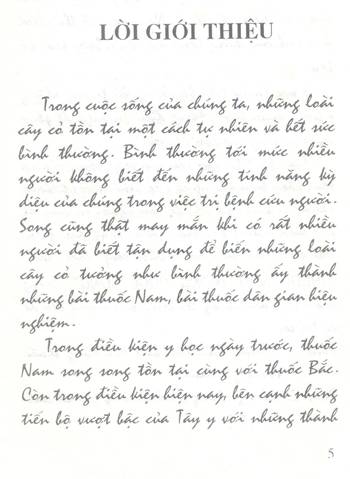 LỜI GIỚI THIỆU
Trong cuộc sống của chúng ta, những loài
cây cỏ tồn tại một cách tự nhiên và hết sức
bình thường. Bình thường tới mức nhiều
người không biết đến những tính năng kỳ
diệu của chúng trong việc trị bệnh cứu người.
Song cũng thật may mắn khi có rất nhiều
người đã biết tận dụng để biến những loài
cây cỏ tưởng như bình thường ấy thành
những bài thuốc Nam, bài thuốc dân gian hiệu
nghiệm.
Trong điều kiện y học ngày trước, thuốc
Nam song song tồn tại cùng với thuốc Bắc.
Còn trong điều kiện hiện nay, bên cạnh những
tiến bộ vượt bậc của Tây y với những thành
5